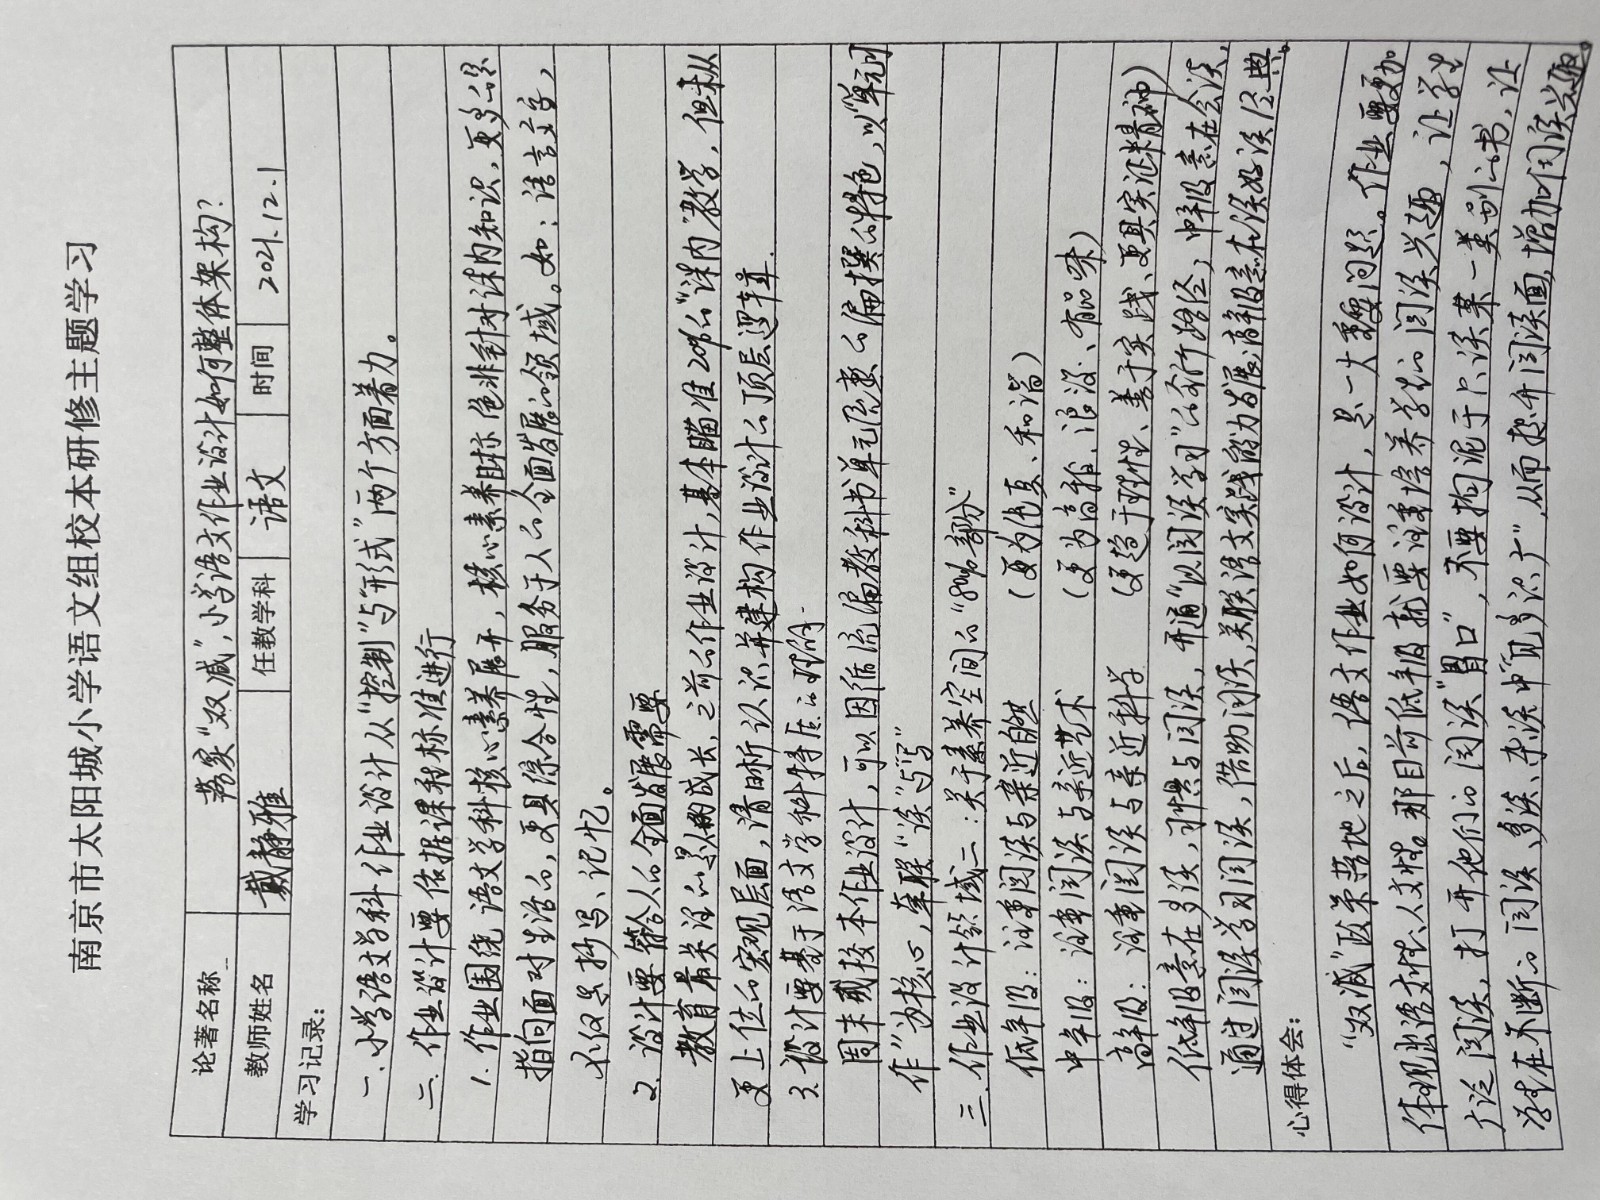 南京市太阳城小学语文组校本研修主题学习
论著名称 落实“双减”,小学语文作业设计如何整体架构?
教师姓名 戴静雅 任教学科 语文 时间 2021.12.1
学习记录:
一.小学语文学科作业设计从“控制”与“形式”两个方面着力。
二.作业设计要依据课程标准进行
1.作业围绕语文学科核心素养展开,核心素养目标绝非针对课内知识,更多的是
指向面对生活的,更具综合性,服务于人的全面发展的领域。如:语言文字,
不仅是抄写、记忆。
2.设计要符合人的全面发展需要
教育最关注的是人的成长,之前的作业设计,基本瞄准20%的“课内”教学,但未从
更上位的宏观层面,清晰认识并建构作业设计的顶层逻辑.
3.设计要基于语文学科特质的理解.
周末或校本作业设计,可以因循统编教科书单元统整的编撰的特色,以“单元习
作”为核心,牵联“读”与“写”
三.作业设计领域二:关于素养空间的“80%部分”
低年级:注重阅读与亲近自然 (更为纯真、和谐)
中年级:注重阅读与亲近艺术 (更为高雅、浪漫、有品味)
高年级:注重阅读与亲近科学 (更趋于理性、善于实践、更具实证精神)
低年级意在多读,习惯与阅读,开通“以阅读学习”的新路径;中年级意在会读,
通过阅读学习阅读,借助阅读,关联语文实践能力发展;高年级意在读好读经典。
心得体会:
“双减”政策落地之后,语文作业如何设计,是一大重要问题。作业要更加
体现出语文性、人文性。那目前低年级就要注重培养学生的阅读兴趣,让学生
广泛阅读,打开他们的阅读“胃口”,不要拘泥于只读某一类别的书,让
学生在不断的阅读、多读、杂读中“见多识广”,从而提升阅读面,增加阅读兴趣。